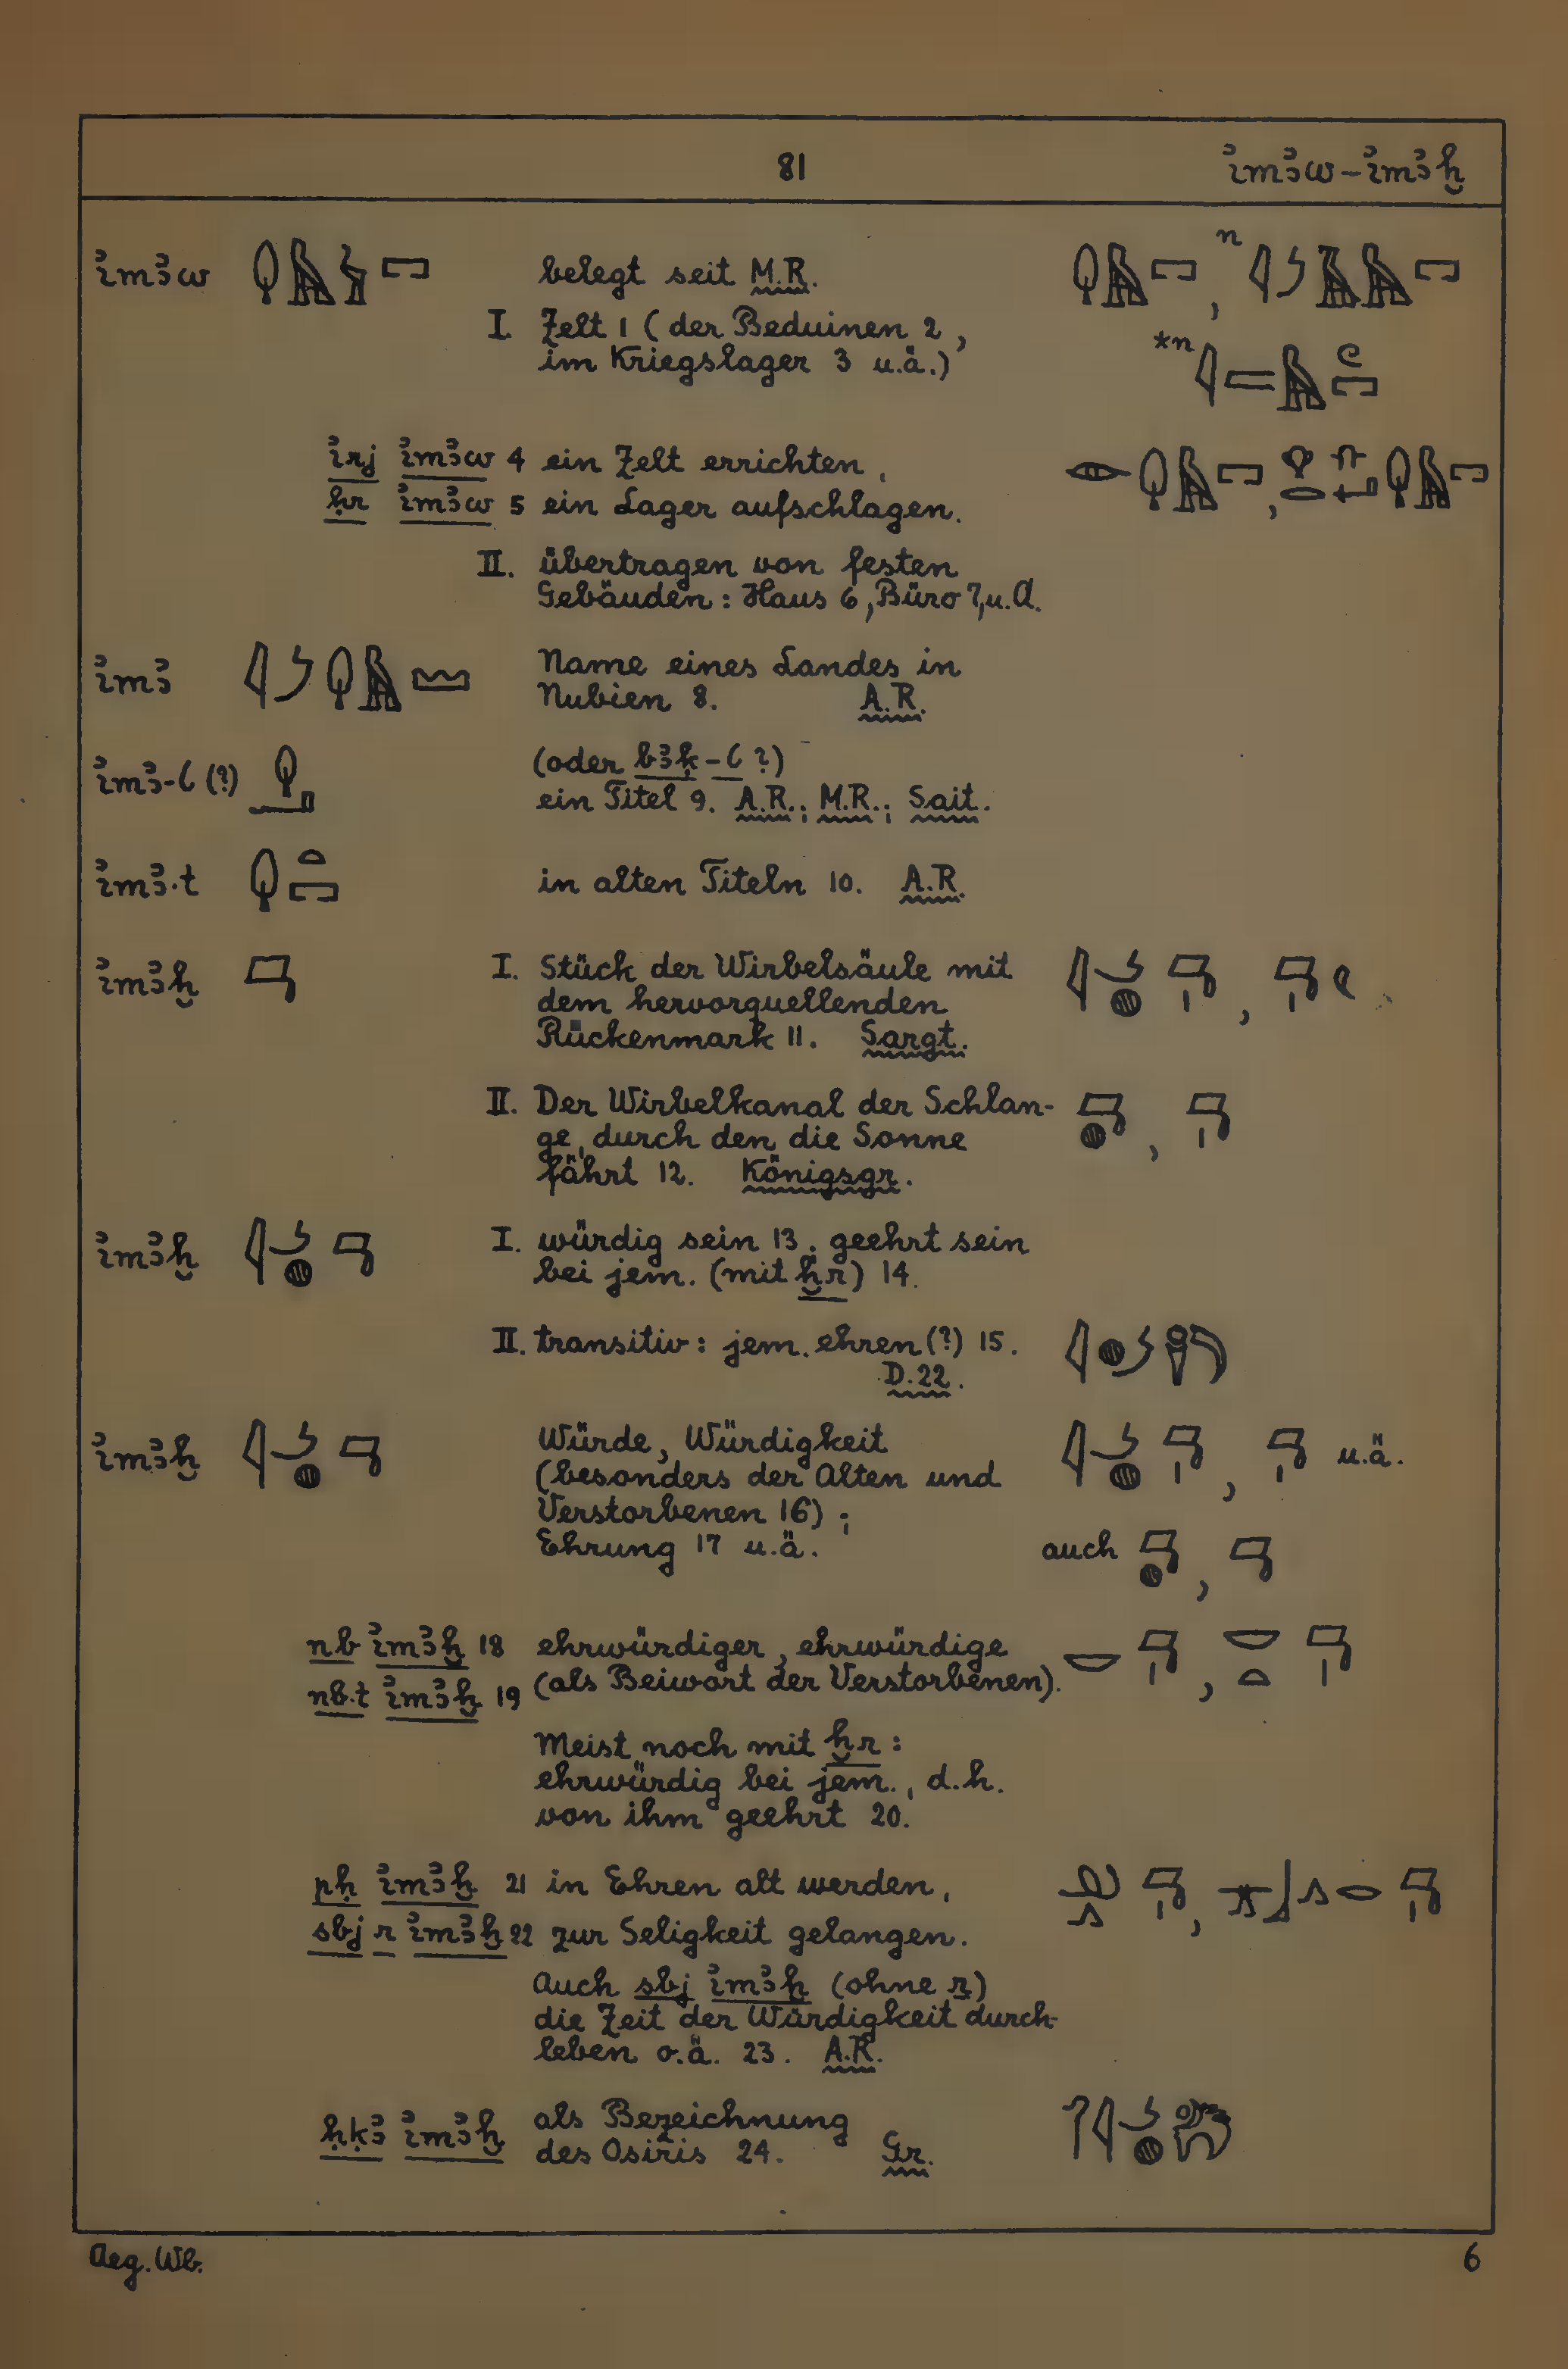 81 ỉmꜣw – ỉmꜣḫ
ỉmꜣw belegt seit M.R.
I. Zelt 1 (der Beduinen 2,
im Kriegslager 3 u.ä.)
ỉrj ỉmꜣw 4 ein Zelt errichten,
ḥr ỉmꜣw 5 ein Lager aufschlagen.
II. übertragen von festen
Gebäuden: Haus 6, Büro 7, u. A.
ỉmꜣ Name eines Landes in
Nubien 8. A.R.
ỉmꜣ-ꜥ (?) (oder bꜣḳ-ꜥ ?)
ein Titel 9. A.R.; M.R.; Sait.
ỉmꜣ.t in alten Titeln 10. A.R.
ỉmꜣḫ I. Stück der Wirbelsäule mit
dem hervorquellenden
Rückenmark 11. Sargt.
II. Der Wirbelkanal der Schlan-
ge, durch den die Sonne
fährt 12. Königsgr.
ỉmꜣḫ I. würdig sein 13. geehrt sein
bei jem. (mit ḫr) 14.
II. transitiv: jem. ehren (?) 15.
D. 22.
ỉmꜣḫ Würde, Würdigkeit u.ä.
(besonders der Alten und
Verstorbenen 16);
Ehrung 17 u.ä. auch
nb ỉmꜣḫ 18 ehrwürdiger, ehrwürdige
nb.t ỉmꜣḫ 19 (als Beiwort der Verstorbenen).
Meist noch mit ḫr:
ehrwürdig bei jem., d.h.
von ihm geehrt 20.
pḥ ỉmꜣḫ 21 in Ehren alt werden,
sbj r ỉmꜣḫ 22 zur Seligkeit gelangen.
Auch sbj ỉmꜣḫ (ohne r)
die Zeit der Würdigkeit durch-
leben o.ä. 23. A.R.
ḥḳꜣ ỉmꜣḫ als Bezeichnung
des Osiris 24. Gr.
Aeg. Wb. 6